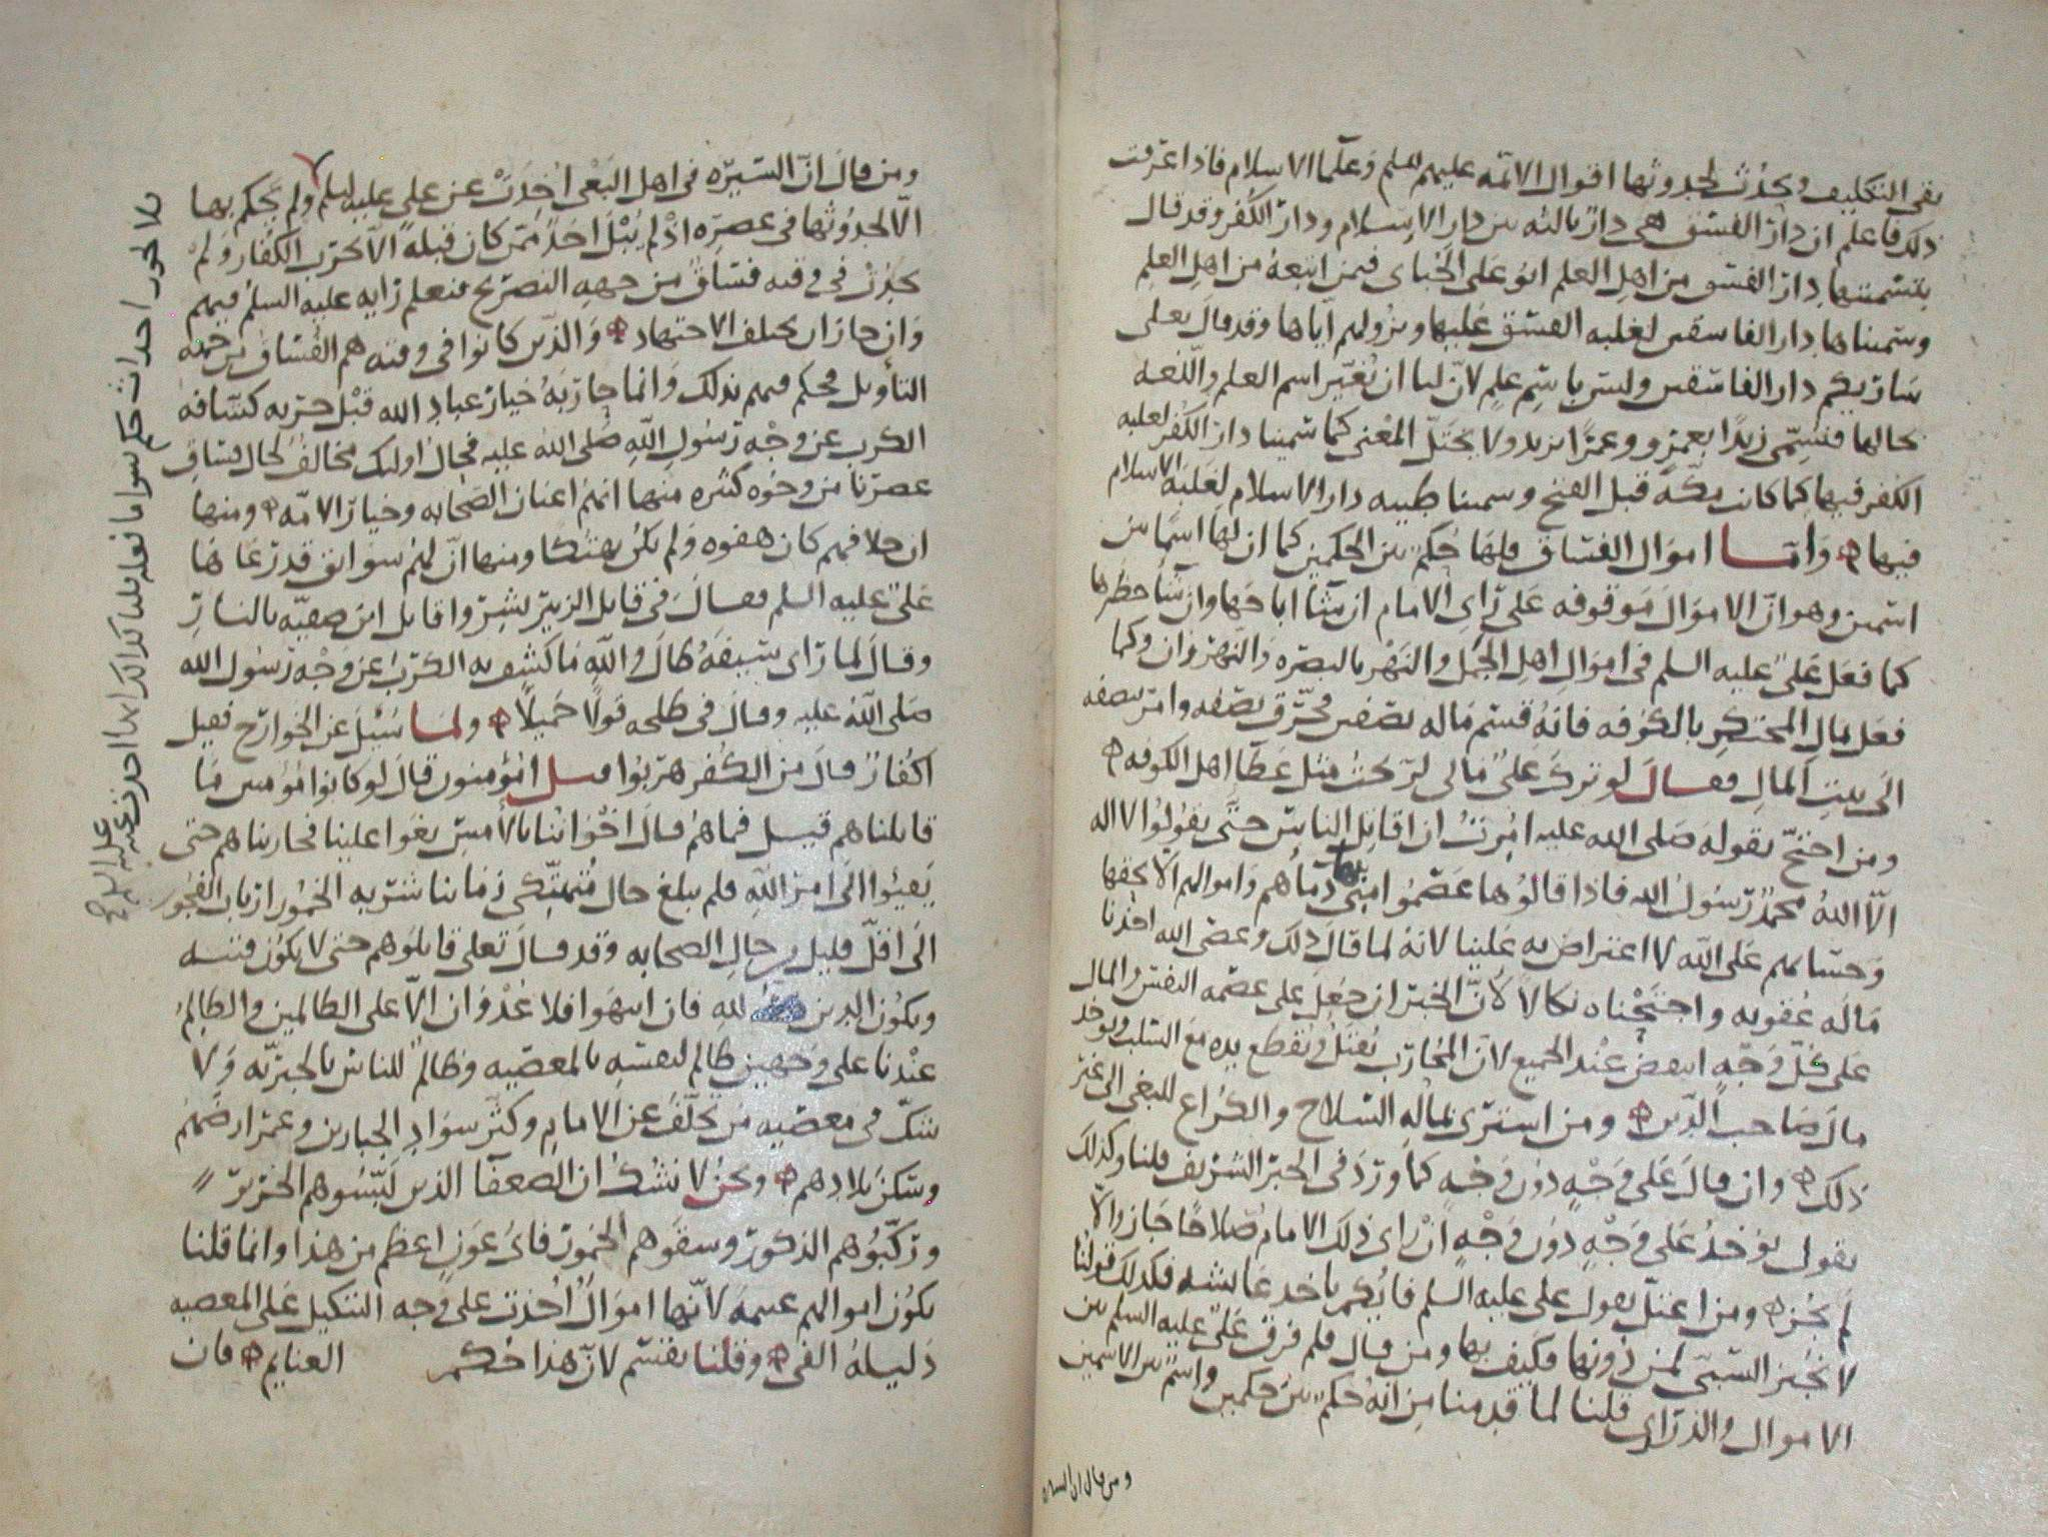 بقي التكليف ويحدث بحدوثها اقوال الائمه عليهم السلم وعلما الاسلام فاذا عرفت
ذلك فاعلم ان دار الفسق هي دار ثالثه بين دار الاسلام ودار الكفر وقد قال
بتسميتها دار الفسق من اهل العلم ابو علي الجباى فمن اتبعه من اهل العلم
وسميناها دار الفاسقين لغلبه الفسق عليها ونزولهم اياها وقد قال تعلى
سأريكم دار الفاسقين وليس باسم علم لان لنا ان نغير اسم العلم واللغه
بحالها فنسمى زيدا بعمرو وعمرا بزيد ولا يختل المعنى كما سمينا دار الكفر لغلبه
الكفر فيها كما كانت مكة قبل الفتح وسمينا طيبه دار الاسلام لغلبه الاسلام
فيها واما اموال الفساق فلها حكم بين الحكمين كما ان لها اسما بين
اسمين وهو ان الاموال موقوفه على راى الامام ان شا اباحها وان شا حظرها
كما فعل على عليه السلم في اموال اهل الجمل والنهر بالبصره والنهروان وكما
فعل بمال المحتكر بالكوفه فانه قسم ماله نصفين فحرق نصفه وامر بنصفه
الى بيت المال فقال لو ترك علي مالى لربحت مثل عطا اهل الكوفه
ومن احتج بقوله صلى الله عليه امرت ان اقاتل الناس حتى يقولوا لا اله
الا الله محمد رسول الله فاذا قالوها عصموا منى بها دماهم واموالهم الا بحقها
وحسابهم على الله لا اعتراض به علينا لانه لما قال ذلك وعصى الله اخذنا
ماله عقوبه واجتحناه نكالا لان الخبر ان جعل على عصمه النفس والمال
على كل وجه انتقض عند الجميع لان المحارب يقتل وتقطع يده مع السلب ويوخذ
مال صاحب الدين ومن اشترى بماله السلاح والكراع للبغى الى غير
ذلك وان قال على وجه دون وجه كما ورد في الخبر الشريف قلنا وكذلك
نقول يوخذ على وجه دون وجه ان راى ذلك الامام صلاحا جاز والا
لم يجز ومن اعتل بقول على عليه السلم فايكم ياخذ عايشه فكذلك قولنا
لا نجيز السبى لمن دونها فكيف بها ومن قال فلم فرق على عليه السلم بين
الاموال والذراري قلنا لما قدمنا من انه حكم بين حكمين واسم بين الاسمين
ومن قال ان السيره
ومن قال ان السيره في اهل البغى اخذت عن على عليه السلم ولم يحكم بها
الا لحدوثها في عصره اذ لم يبتل احد ممن كان قبله الا بحرب الكفار ولم
يحدث في وقته فساق من جهه التصريح فنعلم رايه عليه السلم فيهم
وان جاز ان يختلف الاجتهاد والذين كانوا في وقته هم الفساق من جهه
التأويل فحكم فيهم بذلك وانما حاربه خيار عباد الله قبل حربه كشافه
الكرب عن وجه رسول الله صلى الله عليه فحال اولئك مخالف لحال فساق
عصرنا من وجوه كثيره منها انهم اعيان الصحابه وخيار الامه ومنها
ان خلافهم كان هفوه ولم يكن تهتكا ومنها ان لهم سوابق قد رعاها
على عليه السلم فقال في قاتل الزبير بشروا قاتل ابن صفيه بالنار
وقال لما راى سيفه طال والله ما كشف به الكرب عن وجه رسول الله
صلى الله عليه وقال في طلحه قولا جميلا ولما سئل عن الخوارج فقيل
اكفار قال من الكفر هربوا قيل امؤمنون قال لو كانوا مؤمنين ما
قاتلناهم قيل فما هم قال اخواننا بالامس بغوا علينا فحاربناهم حتى
يفيئوا الى امر الله فلم يبلغ حال متهتكى زماننا شربه الخمور ارباب الفجور
الى اقل قليل من حال الصحابه وقد قال تعلى قاتلوهم حتى لا يكون فتنه
ويكون الدين لله فان انتهوا فلا عدوان الا على الظالمين والظالم
عندنا على وجهين ظالم لنفسه بالمعصيه وظالم للناس بالجبريه ولا
شك في معصيه من تخلف عن الامام وكثر سواد الجبارين وعمر ارضهم
وسكن بلادهم ونحن لا نشك ان الضعفا الذين لبسوهم الحرير
وركبوهم الذكور وسقوهم الخمور فاى عون اعظم من هذا وانما قلنا
يكون اموالهم غنيمة لانها اموال اخذت على وجه التنكيل على المعصيه
دليله الفى وقلنا يقسم لان هذا حكم الغنايم فان